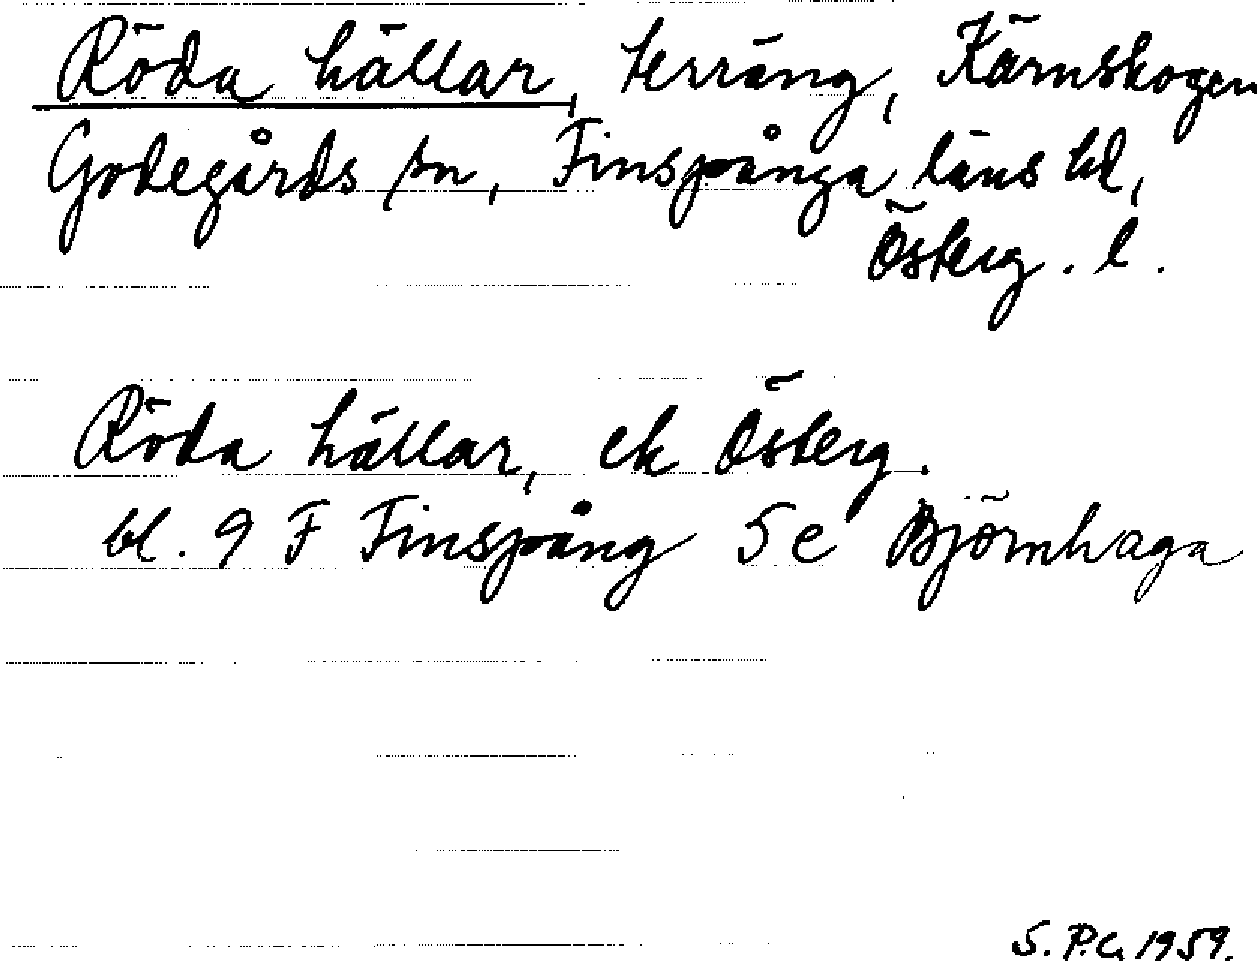 Röda hällar, terräng, Kärnskogen
Godegårds sn, Finspånga läns hd,
Österg. l.
Röda hällar, ek Österg.
bl. 9 F Finspång 5 e Björnhaga
S.P.G. 1959.